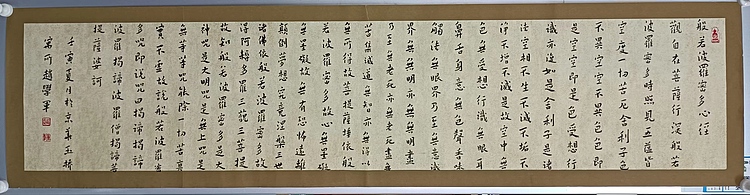 般若波羅蜜多心經
觀自在菩薩行深般若
波羅蜜多時照見五蘊皆
空度一切苦厄舍利子色
不異空空不異色色即
是空空即是色受想行
識亦復如是舍利子是諸
法空相不生不滅不垢不
淨不增不減是故空中無
色無受想行識無眼耳
鼻舌身意無色聲香味
觸法無眼界乃至無意識
界無無明亦無無明盡
乃至無老死亦無老死盡無
苦集滅道無智亦無得以
無所得故菩提薩埵依般
若波羅蜜多故心無罣礙
無罣礙故無有恐怖遠離
顛倒夢想究竟涅槃三世
諸佛依般若波羅蜜多故
得阿耨多羅三藐三菩提
故知般若波羅蜜多是大
神咒是大明咒是無上咒是
無等等咒能除一切苦真
實不虛故說般若波羅蜜
多咒即說咒曰揭諦揭諦
波羅揭諦波羅僧揭諦菩
提薩婆訶
壬寅夏月於京華
趙學軍